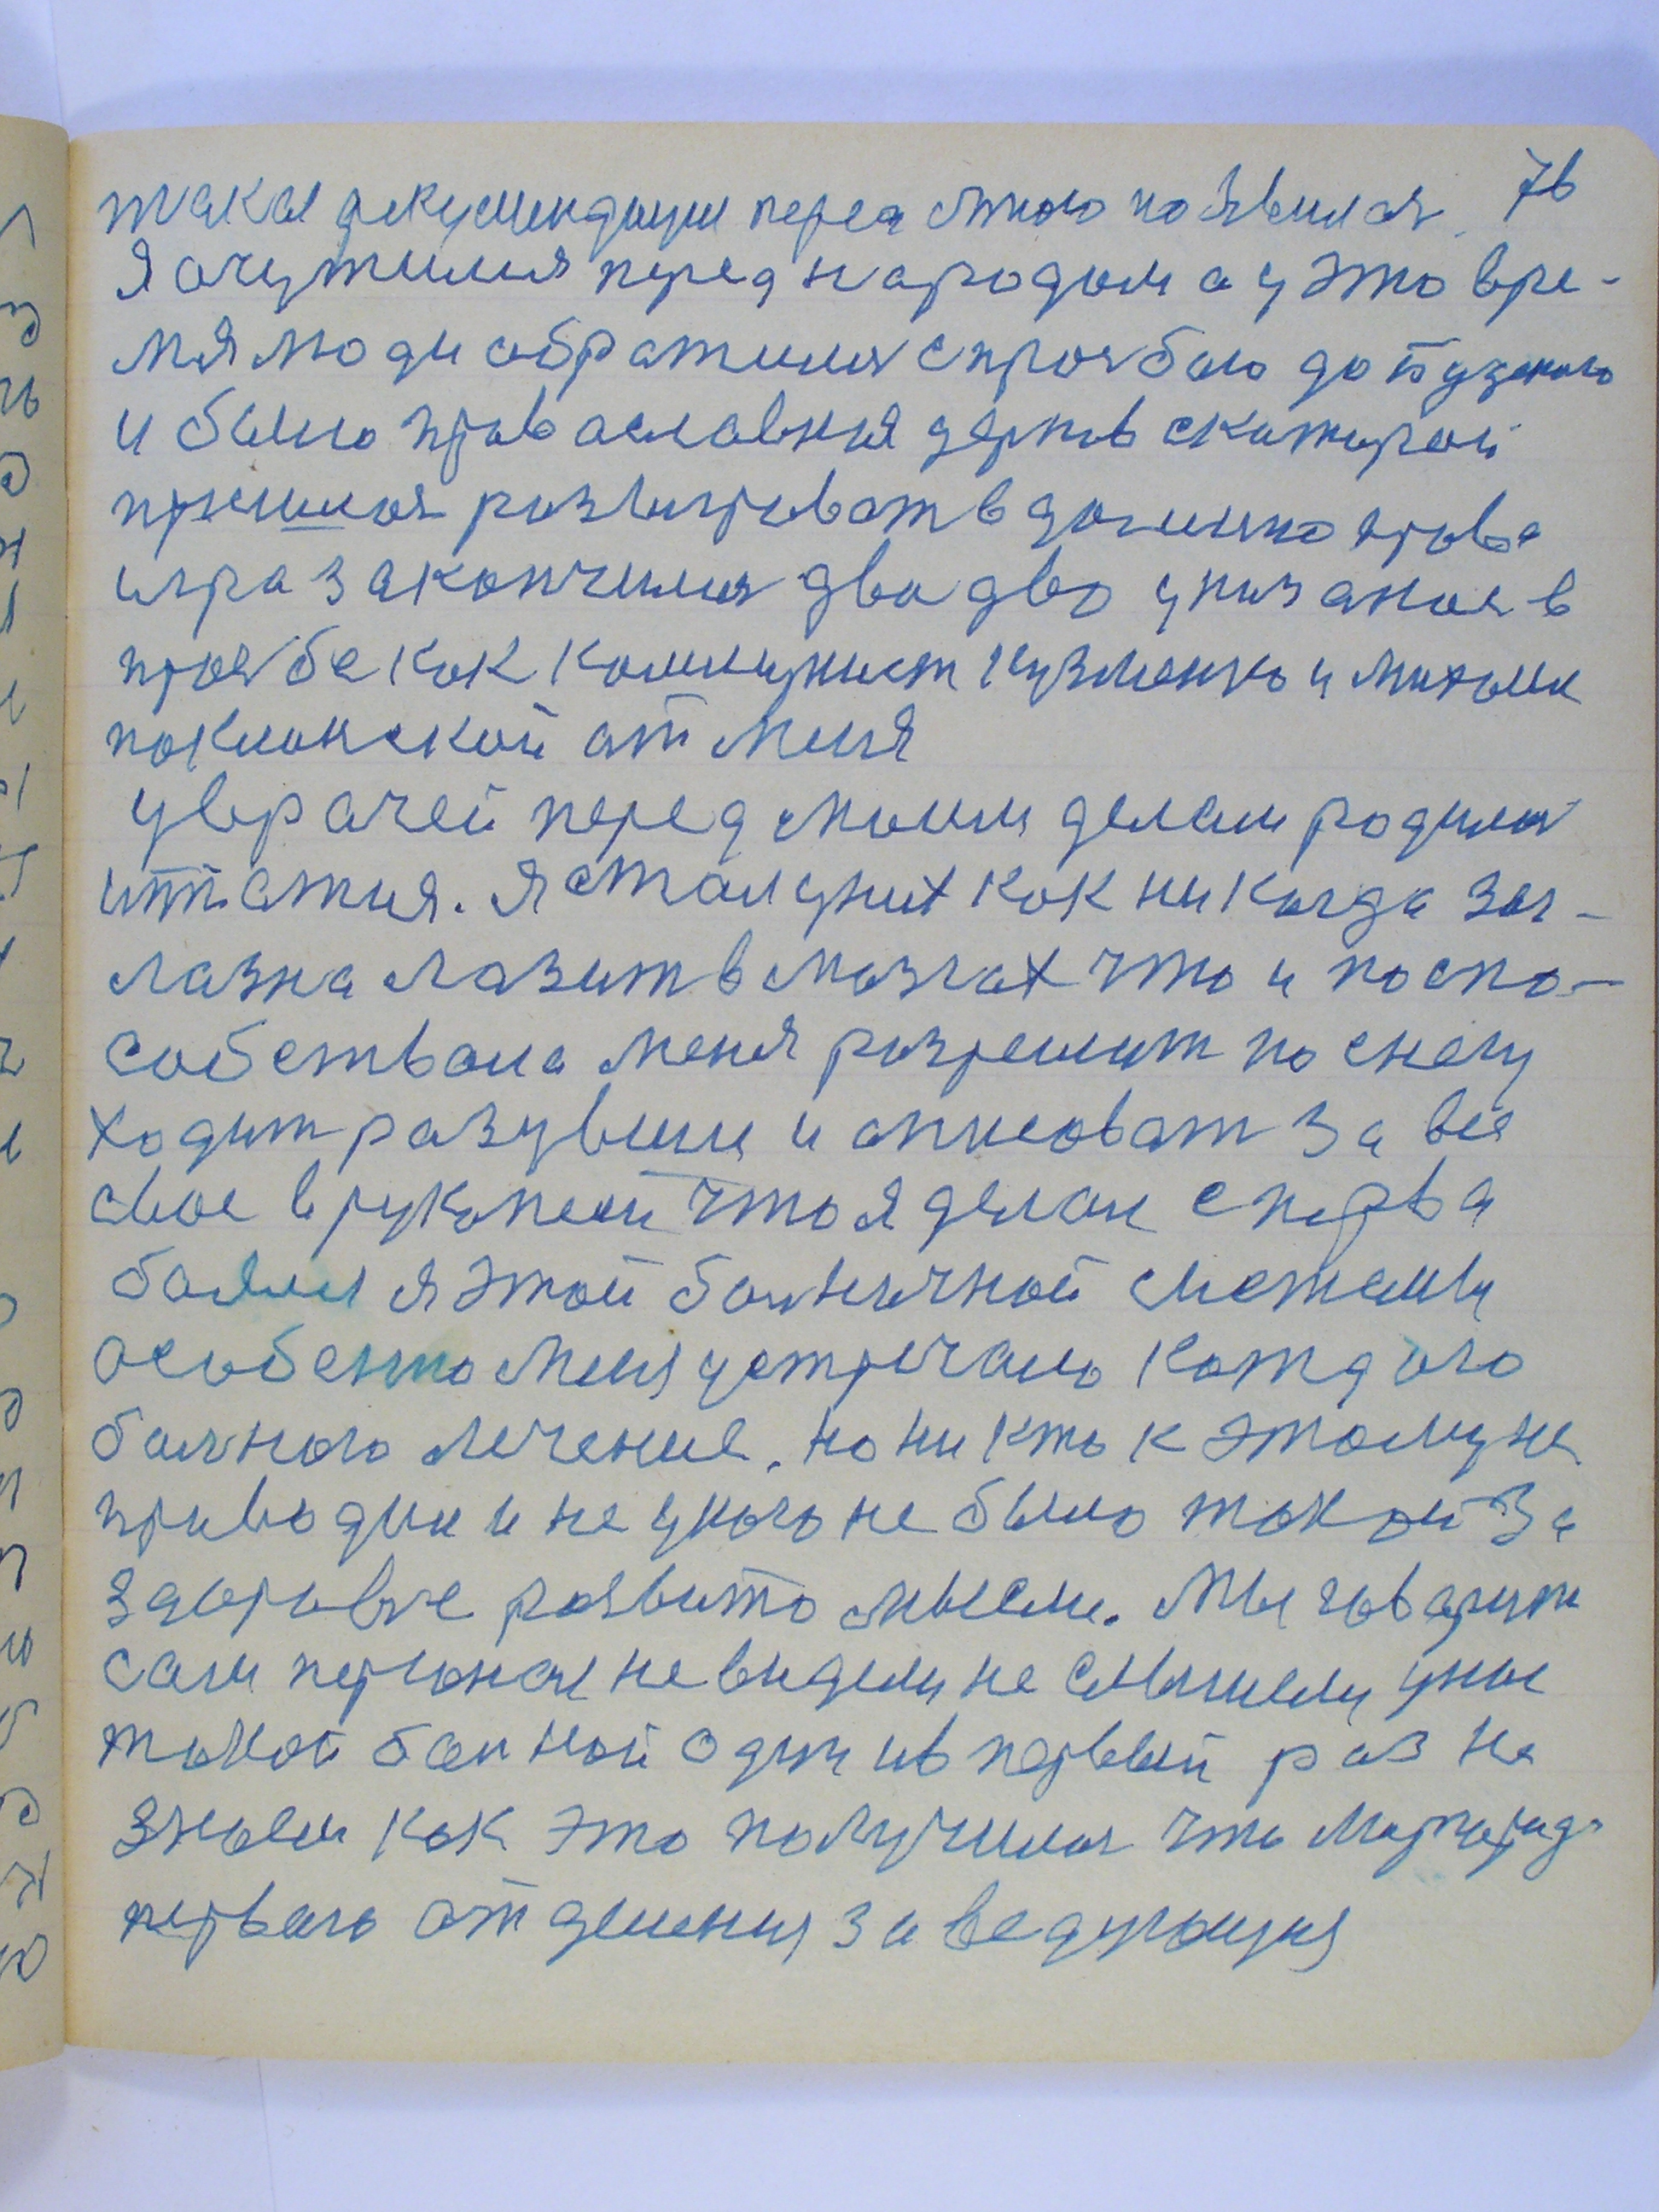 такая рекумендции передамною появилася 76
Я очутился перед народом а у это вре-
мя люди обратился спрозьбою до
и было православная церков скоторой
пришлося розыгривот в домино
игра закончился два два указаное в
прозьбе как коммунист Кузменко и
поклонской от меня
у врачей перед моим делам родился
. я стал у них как никогда заг-
лазна лазит в мозгах что и поспо-
собствола меня розрешит по снегу
ходит разувши и описоват за всё
свое в рукописи что я делаю сперва
боялся я этой больничной системы
особенно меня устричало каждого
больного лечение. но ни кто к этому не
приводил и не укого не было такой за
здоровье розвито мысли. Мы говорит
сам персонал не видели не слышели у нас
такой больной один и в первый раз не
знаем как это получился что
первого отделения заведующия